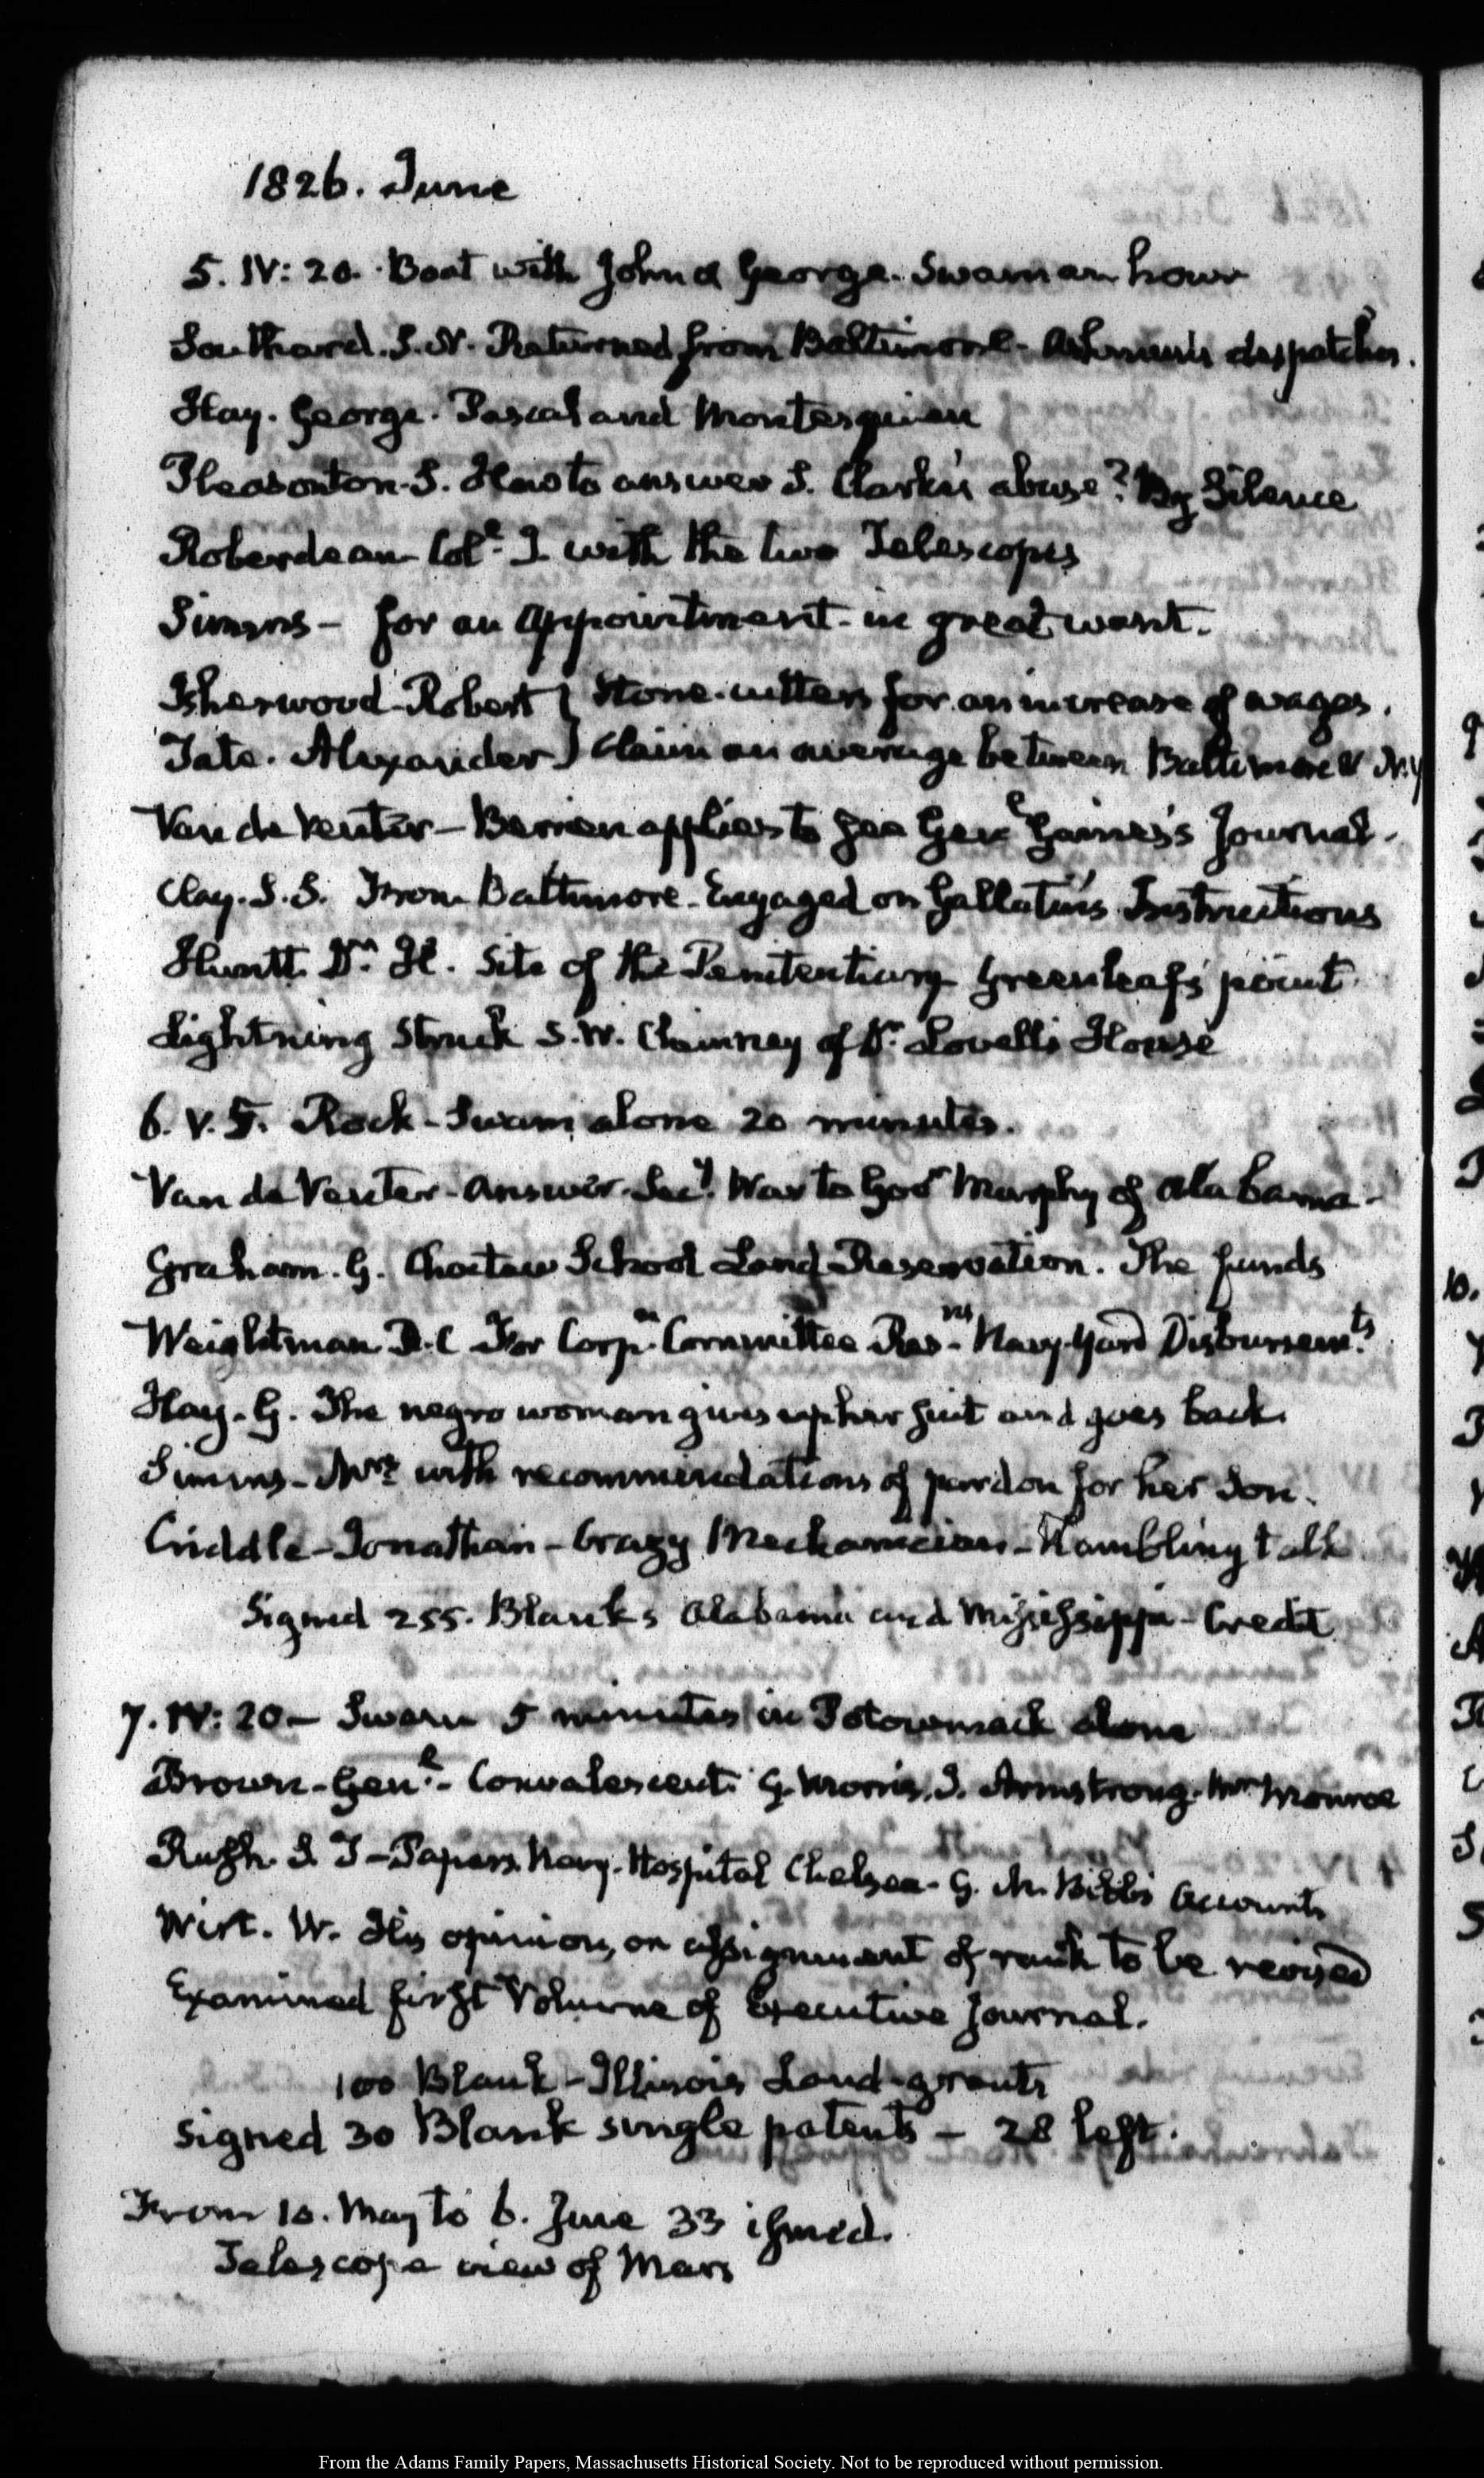 1826. June
5. IV: 20. Boat with John & George. Swam an hour
Southard. S.N. Returned from Baltimore - despatches.
Hay. George. Pascal and Montesquieu
Pleasonton. S. How to answer S. Clark's abuse? By Silence
Roberdeau Colel. I. with the two Telescopes
Simms - for an appointment - in great want.
Isherwood Robert } Stone-cutters for an increase of wages.
Tate. Alexander } Claim an average between Baltimore & N.Y
Van de Venter - Berrien applies to see Genl Gaines's Journal.
Clay. S.S. From Baltimore. Engaged on Gallatin's Instructions
Huntt. Dr. H. Site of the Penitentiary Greenleaf's point
Lightning Struck S.W. Chimney of Dr. Lovell's House
6. V. 5. Rock - Swam alone 20 minutes.
Van de Venter - Answer. Secy. War to Govr Murphy of Alabama -
Graham. G. Choctaw School Land Reservation. The funds
Weightman. R.C For Corpn. Committee Navy-Yard Disbursemts.
Hay. G. The negro woman gives up her suit and goes back.
Simms - Mrs. with recommendations of pardon for her Son.
Criddle - Jonathan - Crazy Mechanician - Rambling talk
Signed 255. Blanks Alabama and Mississippi - Credit
7. IV: 20 - Swam 5 minutes in Potowmack alone
Brown - Genl. - Convalescent. G. Morris. J. Armstrong. Mr Monroe
Rush. S. T - Papers. Navy. Hospital Chelsea - G. M. Bibb's Accounts
Wirt. W. His opinion, on assignment of rank to be revised
Examined first Volume of Executive Journal.
100 Blank - Illinois Land-grants
Signed 30 Blank single patents - 28 left.
From 10. May to 6. June 33 issued.
Telescope view of Mars
From the Adams Family Papers, Massachusetts Historical Society. Not to be reproduced without permission.